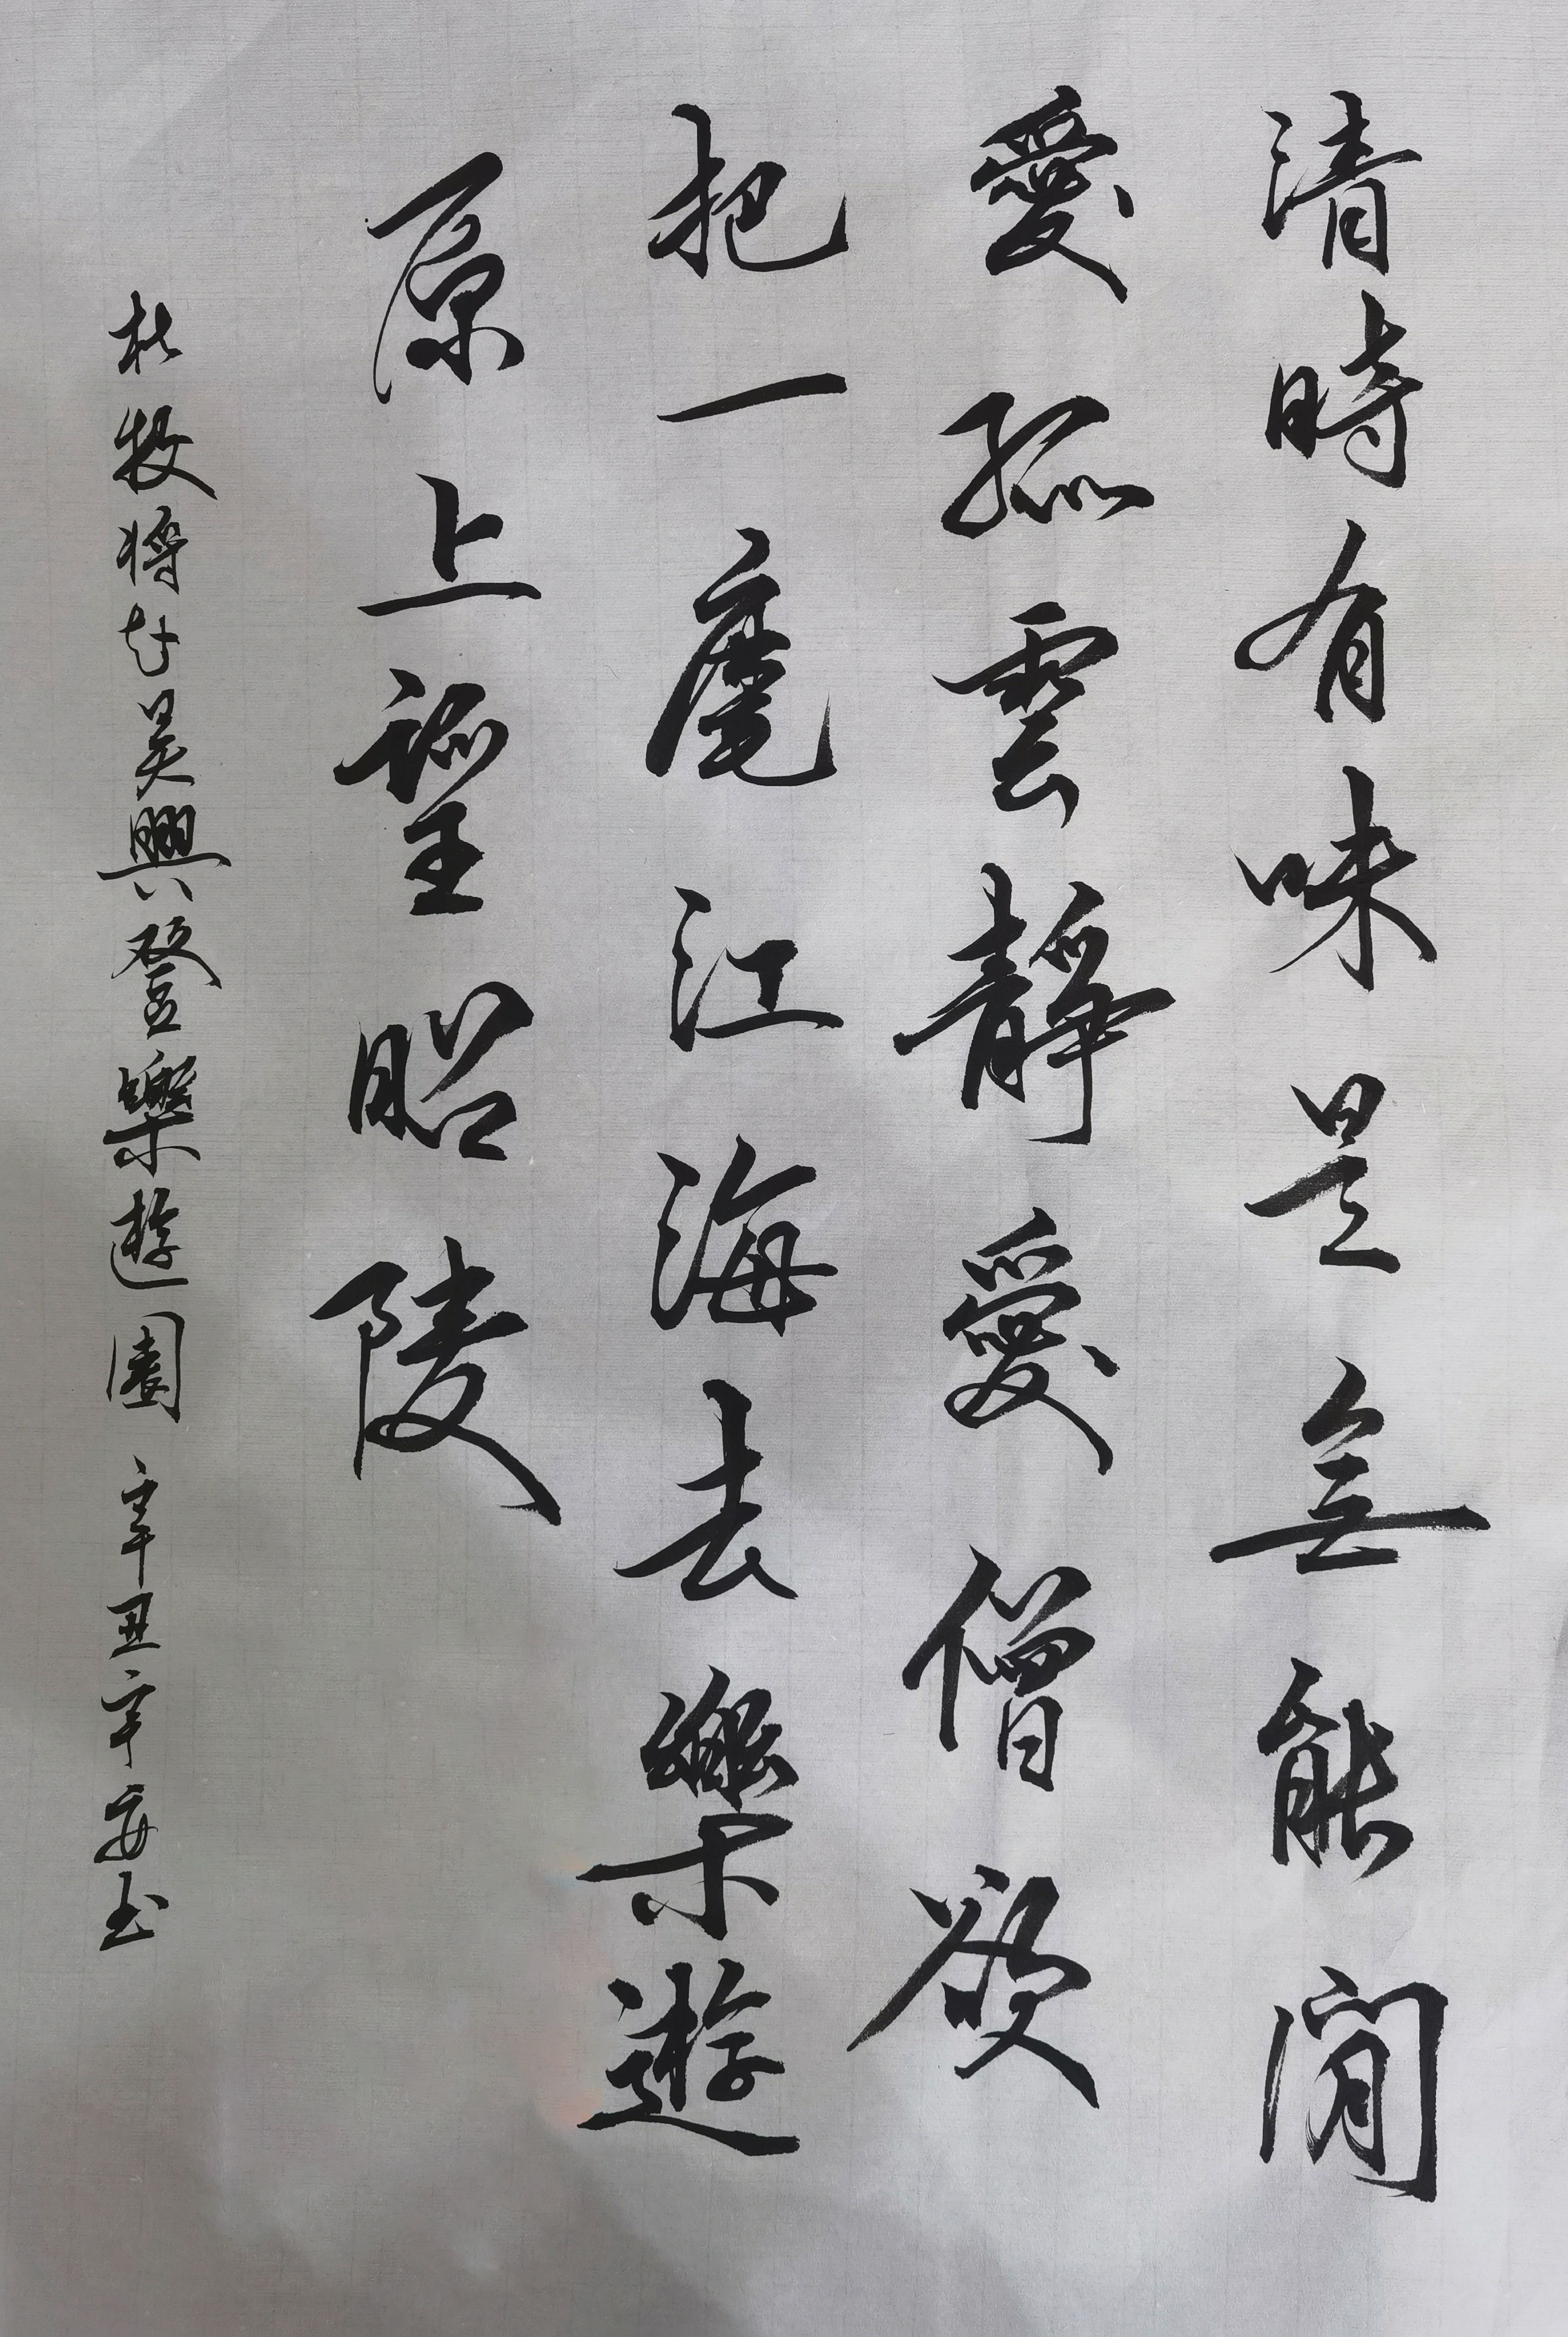 清時有味是無能閒
愛孤雲靜愛僧欲
把一麾江海去樂遊
原上望昭陵
杜牧將赴吳興登樂遊園 辛丑辛安書